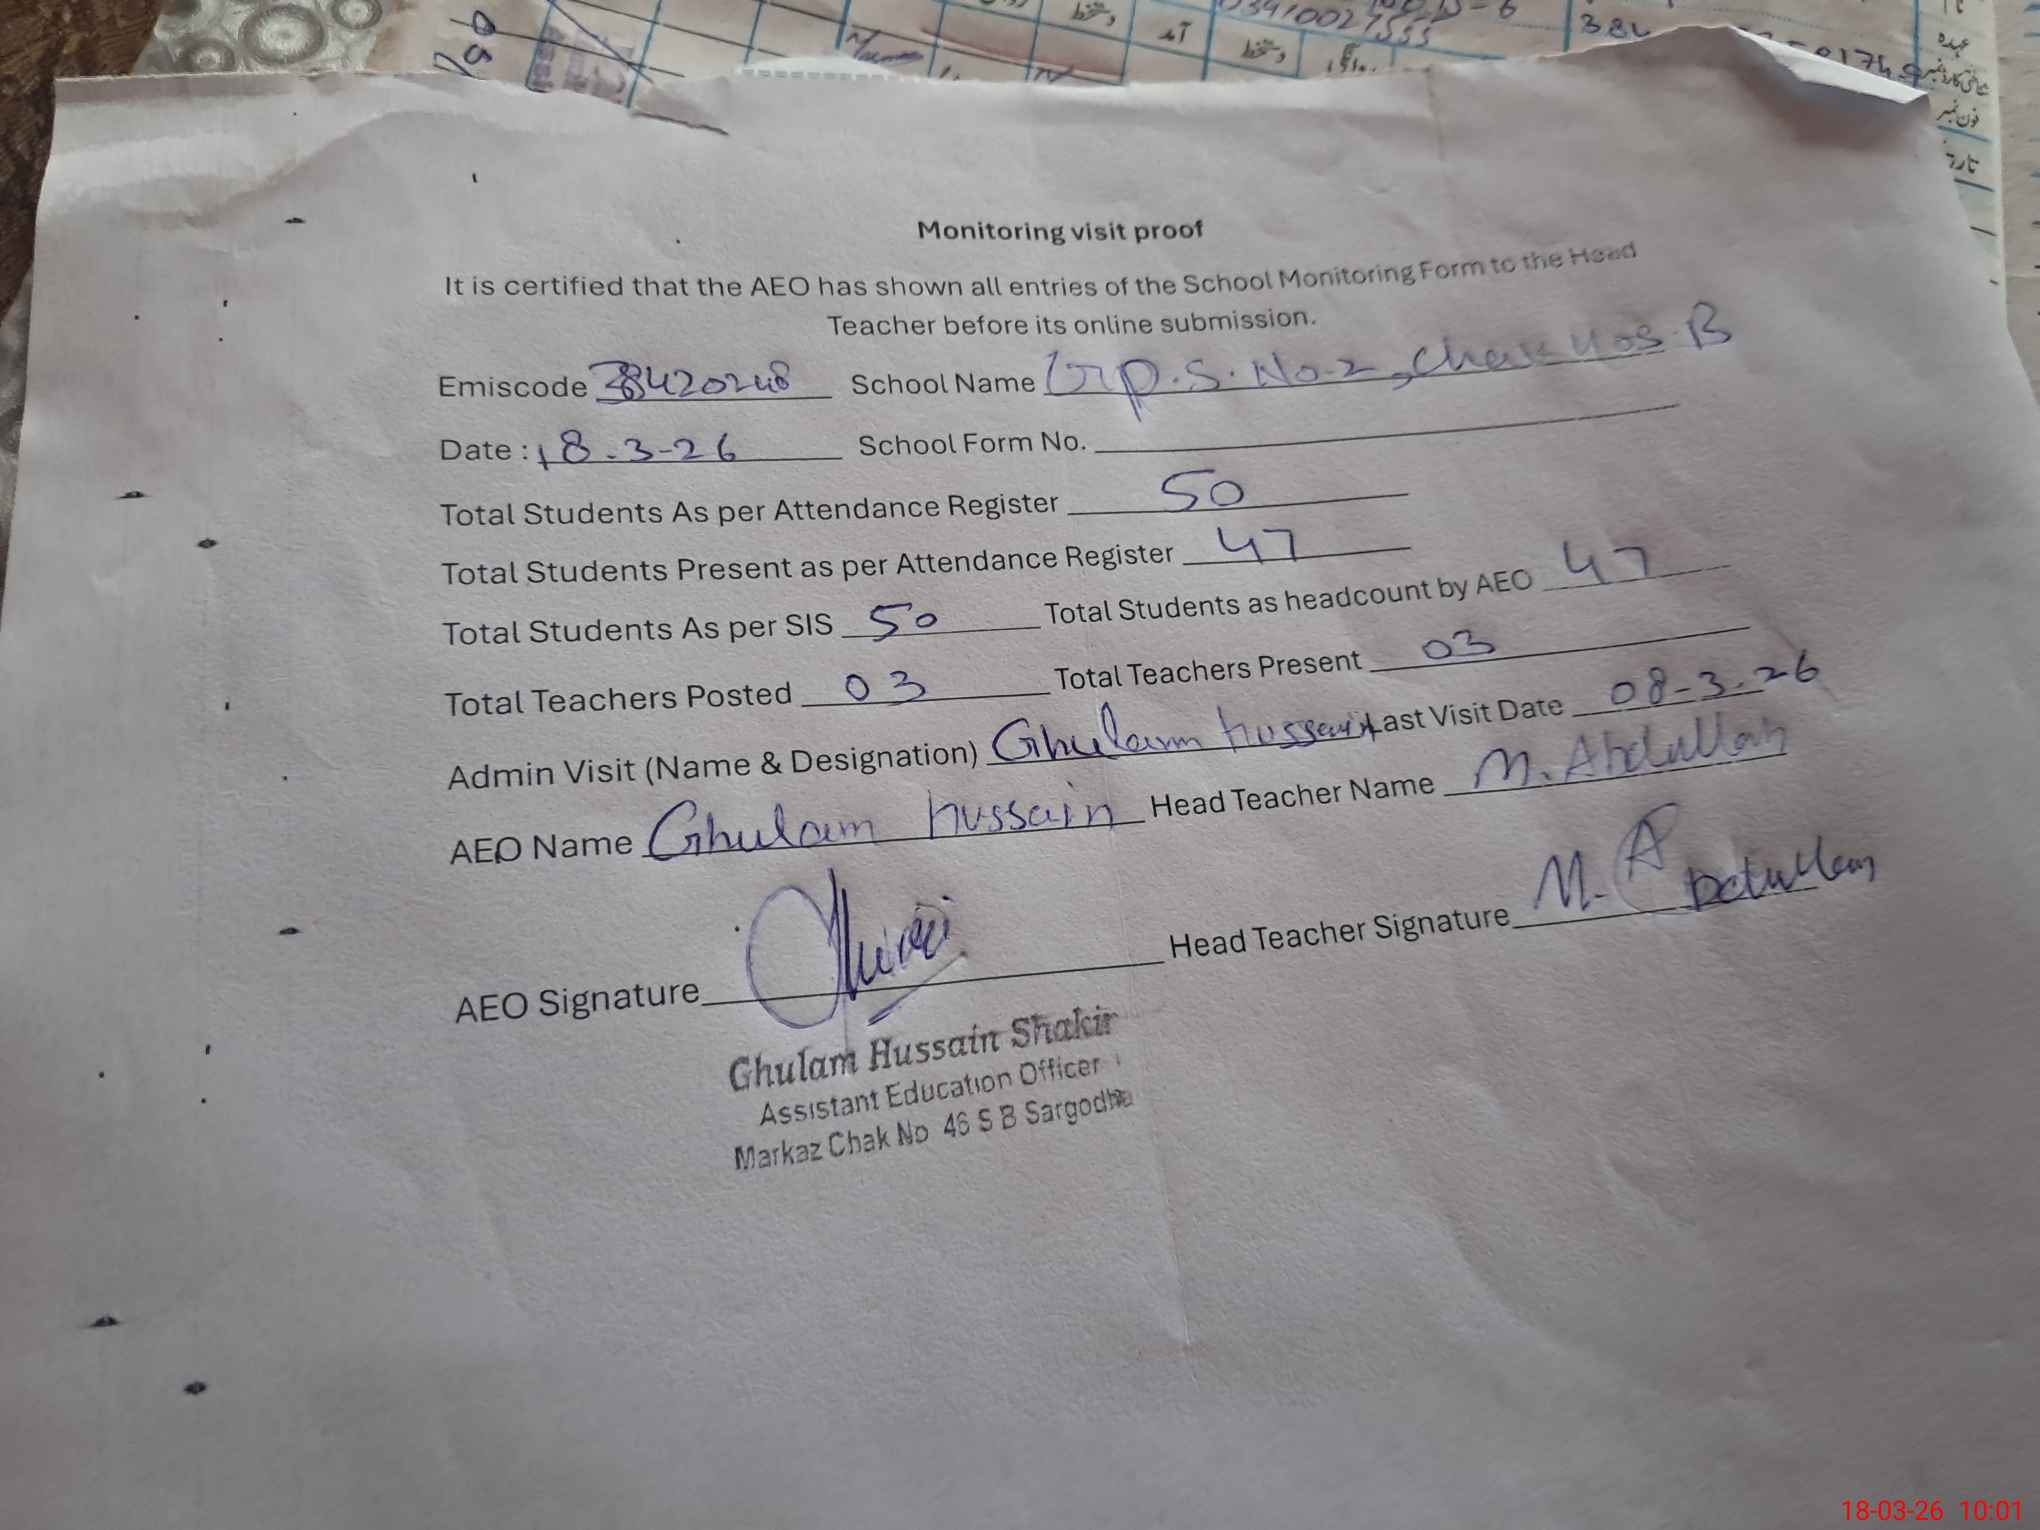 03410027555
384
دستخط
آمد
دستخط
روانگی
عہدہ
شناختی کارڈ نمبر
فون نمبر
Monitoring visit proof
It is certified that the AEO has shown all entries of the School Monitoring Form to the Head
Teacher before its online submission.
Emiscode 38420248 School Name G.P.S. No.2, Chak 40 S.B
Date : 18.3-26 School Form No.
Total Students As per Attendance Register 50
Total Students Present as per Attendance Register 47
Total Students As per SIS 50 Total Students as headcount by AEO 47
Total Teachers Posted 03 Total Teachers Present 03
Admin Visit (Name & Designation) Ghulam hussain Last Visit Date 08-3.26
AEO Name Ghulam hussain Head Teacher Name M. Abdullah
AEO Signature Head Teacher Signature M. Abdullah
Ghulam Hussain Shakir
Assistant Education Officer
Markaz Chak No 46 S B Sargodha
18-03-26 10:01